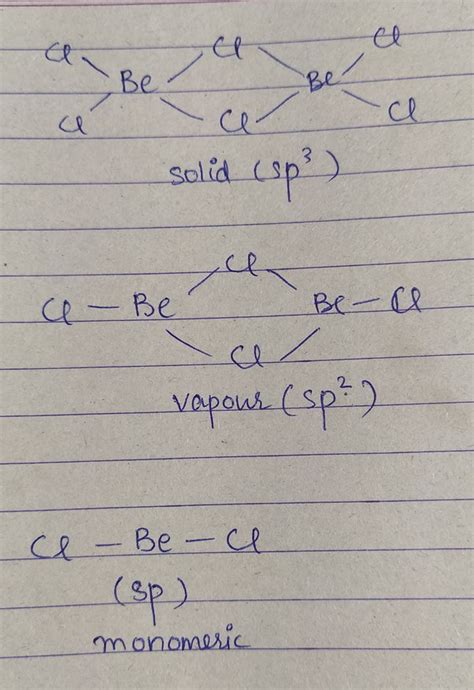 Cl Cl Cl
Be Be
Cl Cl Cl
solid (sp³)
Cl
Cl – Be Be – Cl
Cl
vapour (sp²)
Cl – Be – Cl
(sp)
monomeric